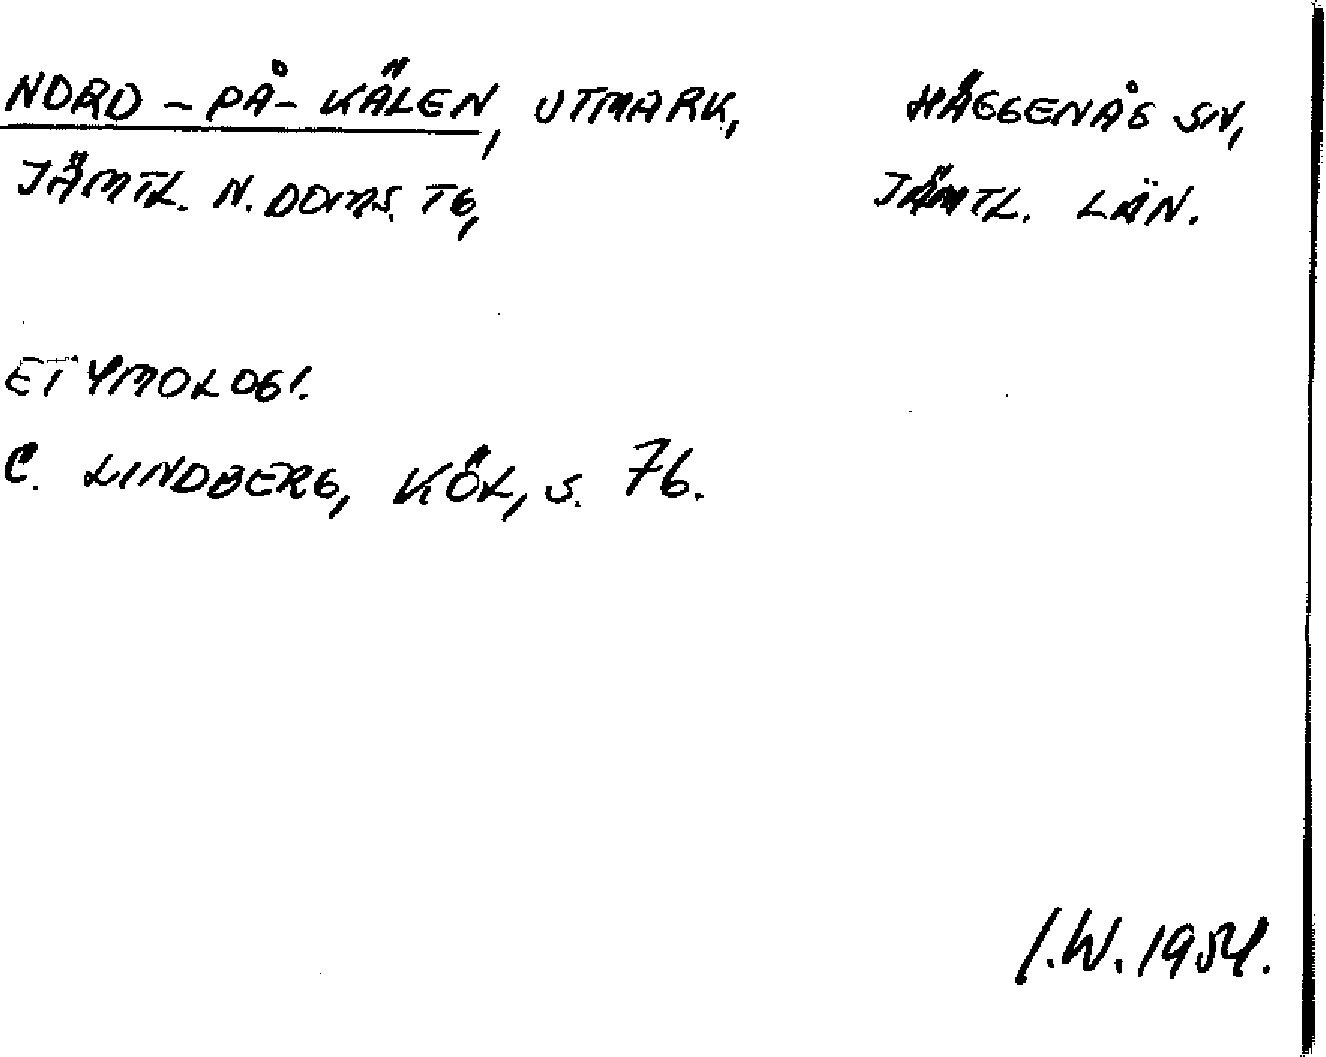 NORD-PÅ-KÄLEN, UTMARK, HÄGGENÅS SN,
JÄMTL. N. DOMS. TG, JÄMTL. LÄN.
ETYMOLOGI.
C. LINDBERG, KÖL, S. 76.
I.W. 1954.